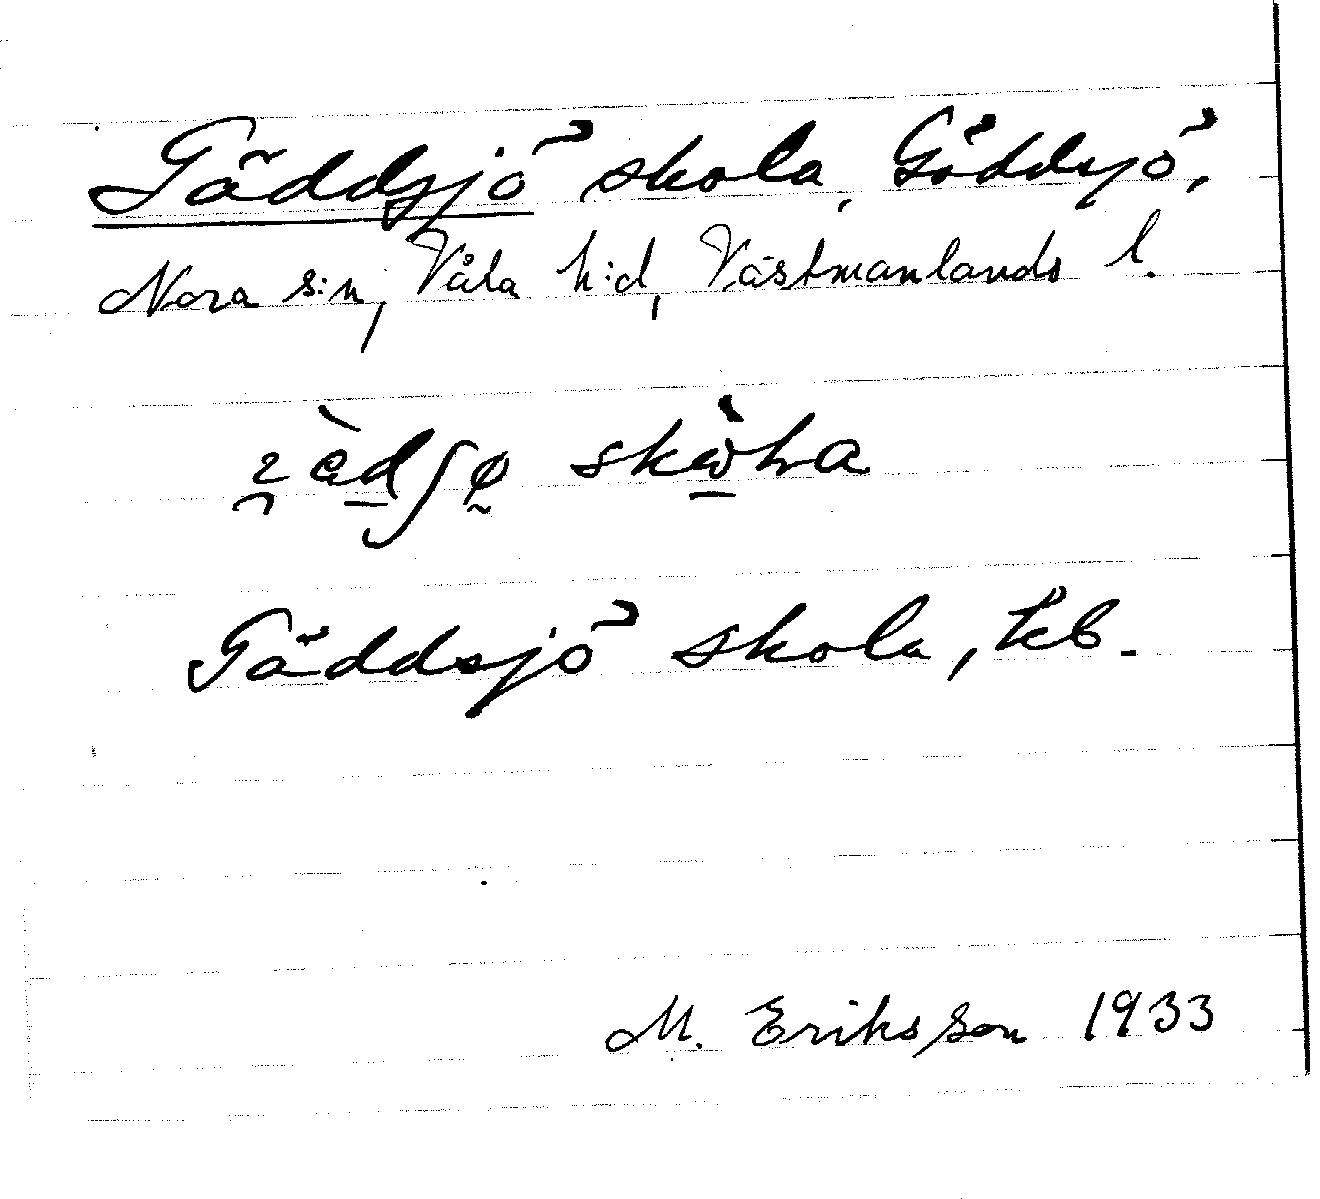 Gäddsjö skola, Gäddsjö,
Nora s:n, Våla h:d, Västmanlands l.
Gäddsjö skola, kb.
M. Eriksson 1933